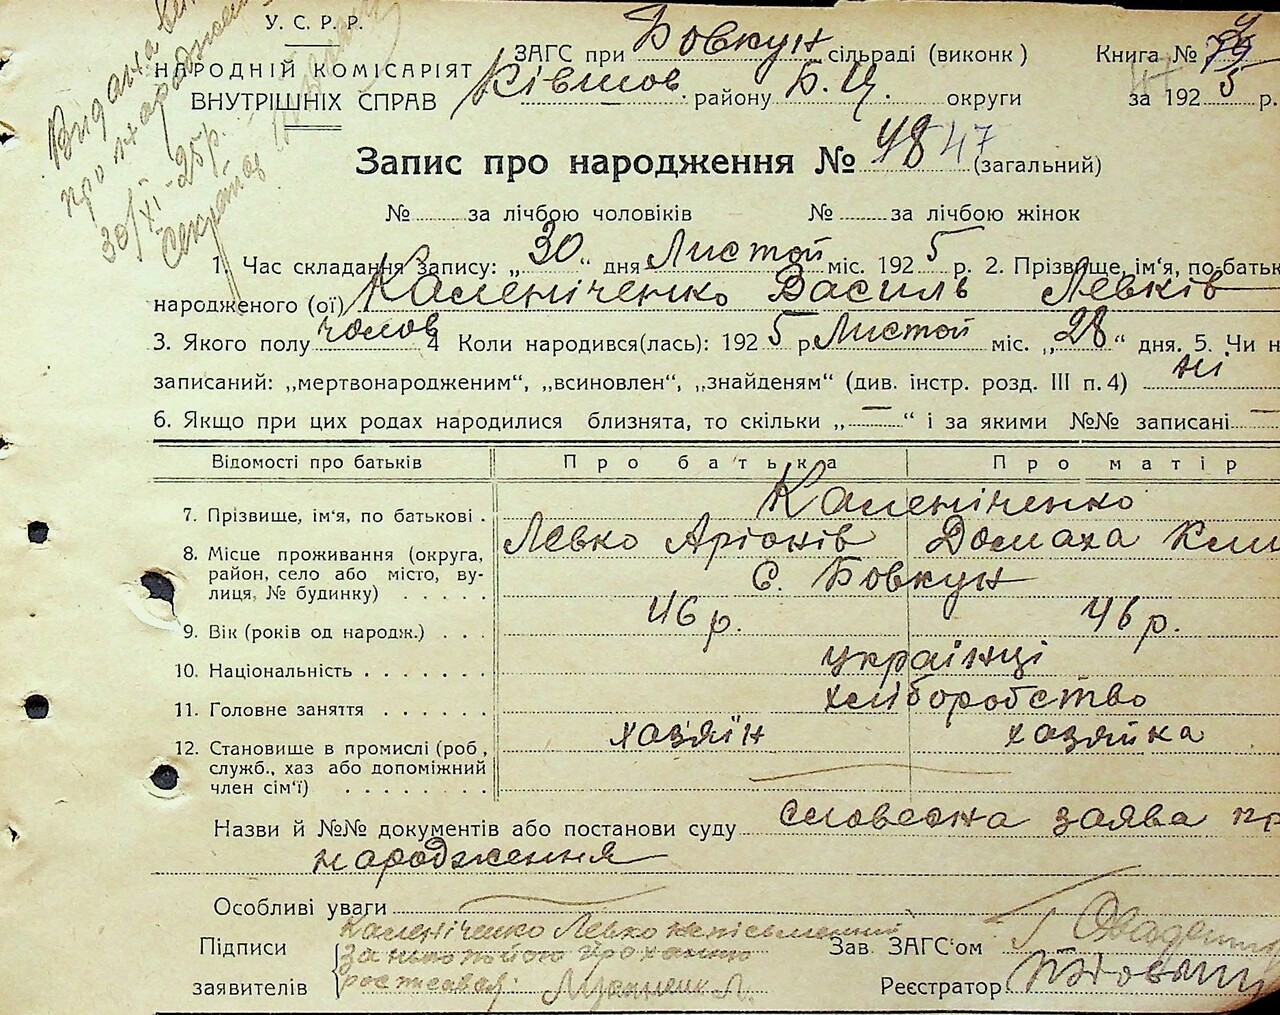 Видана ви
про народжен
30/XI-25р.
Секретар
У. С. Р. Р.
НАРОДНІЙ КОМІСАРІЯТ
ВНУТРІШНІХ СПРАВ
ЗАГС при Бовкун сільраді (виконк)
Ківшов району Б.Ц. округи
Книга № 
за 1925 р.
Запис про народження № 48 47 (загальний)
№ за лічбою чоловіків № за лічбою жінок
1. Час складання запису: „30“ дня Листоп міс. 1925 р. 2. Прізвище, ім'я, по-батьк
народженого (ої) Каленіченко Василь Левків
3. Якого полу чолов 4 Коли народився(лась): 1925 р. Листоп міс. „28“ дня. 5. Чи н
записаний: „мертвонародженим“, „всиновлен“, „знайденям“ (див. інстр. розд. III п. 4) ні
6. Якщо при цих родах народилися близнята, то скільки „—“ і за якими №№ записані —
Відомості про батьків Про батька Про матір
7. Прізвище, ім'я, по батькові . Каленіченко
Левко Аріонів Домаха Кли
8. Місце проживання (округа,
район, село або місто, ву-
лиця, № будинку) . . . . . С. Бовкун
9. Вік (років од народж.) . . . 46 р. 46 р.
10. Національність . . . . . . . українці
11. Головне заняття . . . . . . хліборобство
12. Становище в промислі (роб.,
служб., хаз або допоміжний
член сім'ї) . . . . . . . . хазяїн хазяйка
Назви й №№ документів або постанови суду словесна заява пр
народження
Особливі уваги
Підписи
заявителів
Каленіченко Левко неписьменний
за нього його проханню
росписався
Зав. ЗАГС'ом
Реєстратор